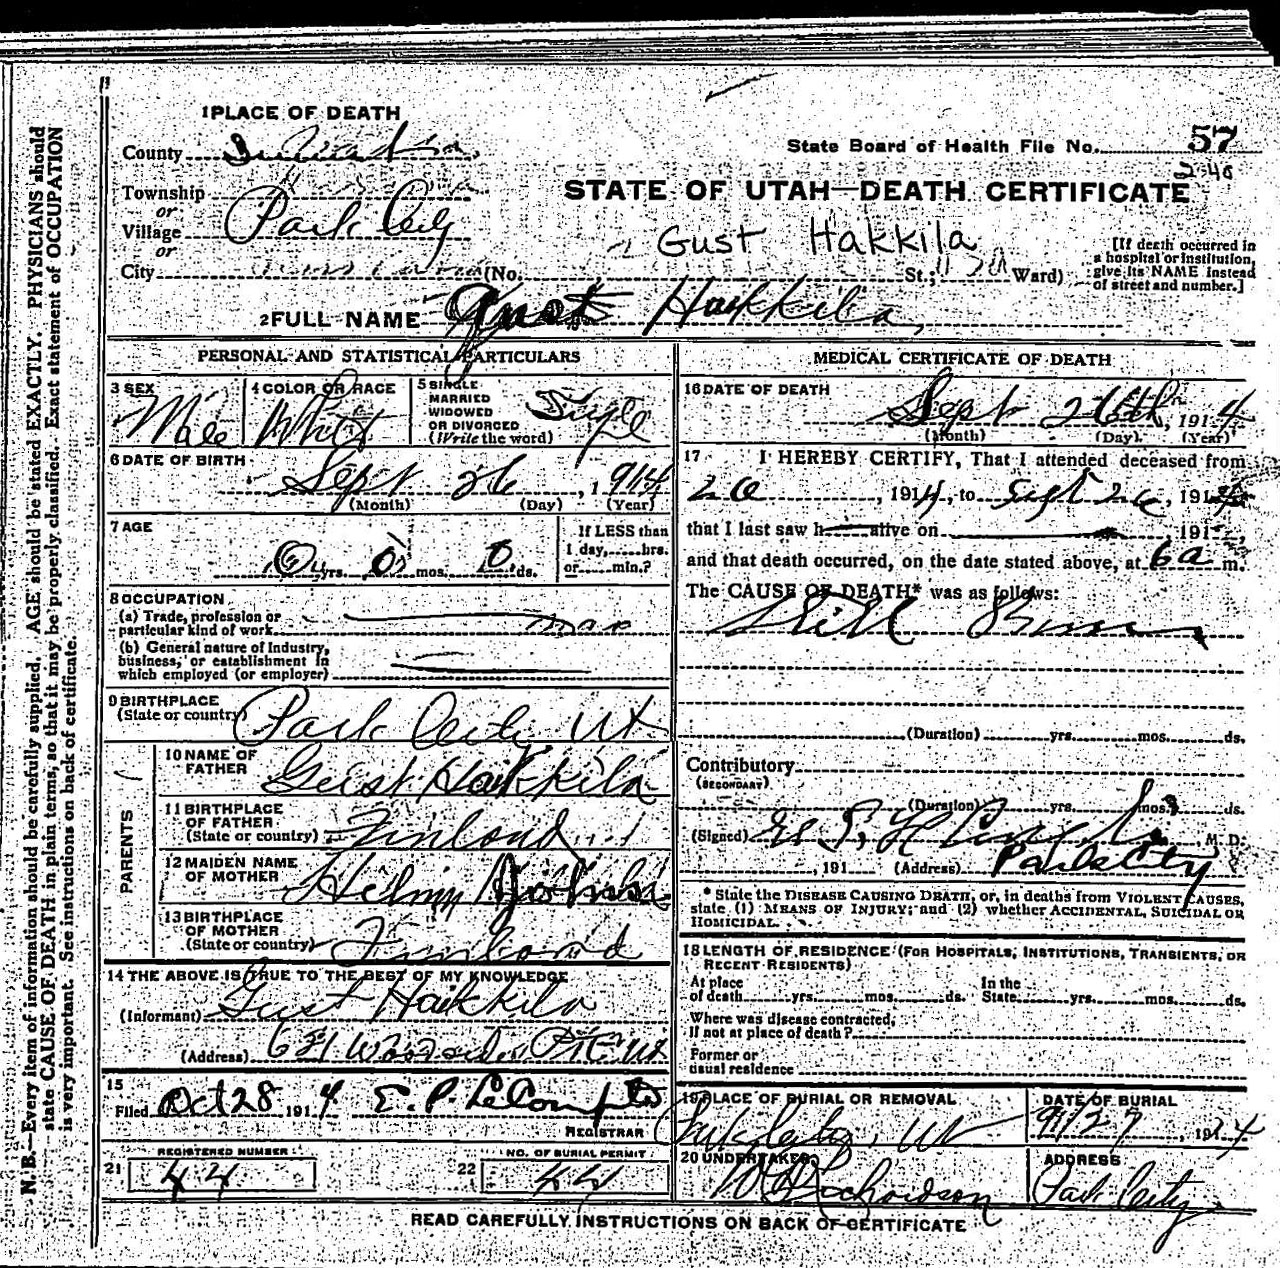 1 PLACE OF DEATH
County Summit
State Board of Health File No. 57
2-40
Township
or
Village Park City
or
City (No. St.; Ward)
STATE OF UTAH—DEATH CERTIFICATE
Gust Hakkila
[If death occurred in
a hospital or institution,
give its NAME instead
of street and number.]
2 FULL NAME Gust Hakkila
PERSONAL AND STATISTICAL PARTICULARS
3 SEX
Male
4 COLOR OR RACE
White
5 SINGLE
MARRIED
WIDOWED
OR DIVORCED
(Write the word)
Single
6 DATE OF BIRTH
Sept 26, 1914
(Month) (Day) (Year)
7 AGE
0 yrs. 0 mos. 0 ds.
If LESS than
1 day, hrs.
or min.?
8 OCCUPATION
(a) Trade, profession or
particular kind of work
(b) General nature of Industry,
business, or establishment in
which employed (or employer)
9 BIRTHPLACE
(State or country) Park City Ut
PARENTS
10 NAME OF
FATHER Gust Hakkila
11 BIRTHPLACE
OF FATHER
(State or country) Finland
12 MAIDEN NAME
OF MOTHER
13 BIRTHPLACE
OF MOTHER
(State or country) Finland
14 THE ABOVE IS TRUE TO THE BEST OF MY KNOWLEDGE
(Informant) Gust Hakkila
(Address) Ut
15
Filed Oct 28 1914 E. P. LeCompte
REGISTRAR
REGISTERED NUMBER
21 44
NO. OF BURIAL PERMIT
22 44
MEDICAL CERTIFICATE OF DEATH
16 DATE OF DEATH
Sept 26th, 1914
(Month) (Day) (Year)
17 I HEREBY CERTIFY, That I attended deceased from
26, 1914, to Sept 26, 1914
that I last saw h alive on 191
and that death occurred, on the date stated above, at 6 a m.
The CAUSE OF DEATH* was as follows:
Still Born
(Duration) yrs. mos. ds.
Contributory
(SECONDARY)
(Duration) yrs. mos. ds.
(Signed) M. D.
, 191 (Address) Park City
* State the DISEASE CAUSING DEATH, or, in deaths from VIOLENT CAUSES,
state (1) MEANS OF INJURY; and (2) whether ACCIDENTAL, SUICIDAL OR
HOMICIDAL.
18 LENGTH OF RESIDENCE (FOR HOSPITALS, INSTITUTIONS, TRANSIENTS, OR
RECENT RESIDENTS)
At place
of death yrs. mos. ds.
In the
State yrs. mos. ds.
Where was disease contracted,
if not at place of death?
Former or
usual residence
19 PLACE OF BURIAL OR REMOVAL
Park City, Ut
DATE OF BURIAL
9/27, 1914
20 UNDERTAKER
Richardson
ADDRESS
Park City
READ CAREFULLY INSTRUCTIONS ON BACK OF CERTIFICATE
N. B.—Every item of information should be carefully supplied. AGE should be stated EXACTLY. PHYSICIANS should
state CAUSE OF DEATH in plain terms, so that it may be properly classified. Exact statement of OCCUPATION
is very important. See instructions on back of certificate.